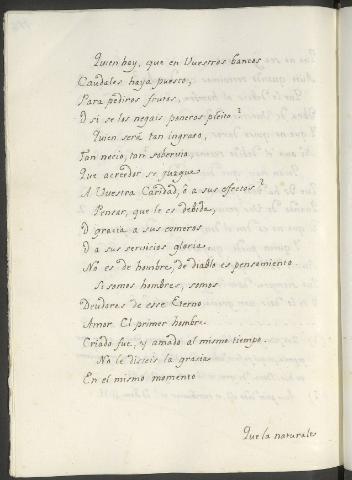 Quien hay, que en Vuestros bancos
Caudales haya puesto,
Para pediros frutos,
O si se los negais poneros pleito?
Quien será tan ingrato,
Tan necio, tan sobervio,
Que acredor se juzgue
A Vuestra Caridad, ó a sus efectos?
Pensar, que le es debida,
O gracia a sus esmeros
O a sus servicios gloria,
No es de hombre, de diablo es pensamiento.
Si somos hombres, somos
Deudores de ese Eterno
Amor. El primer hombre
Criado fue, y amado al mismo tiempo.
No le disteis la gracia
En el mismo momento
Que la naturaleз